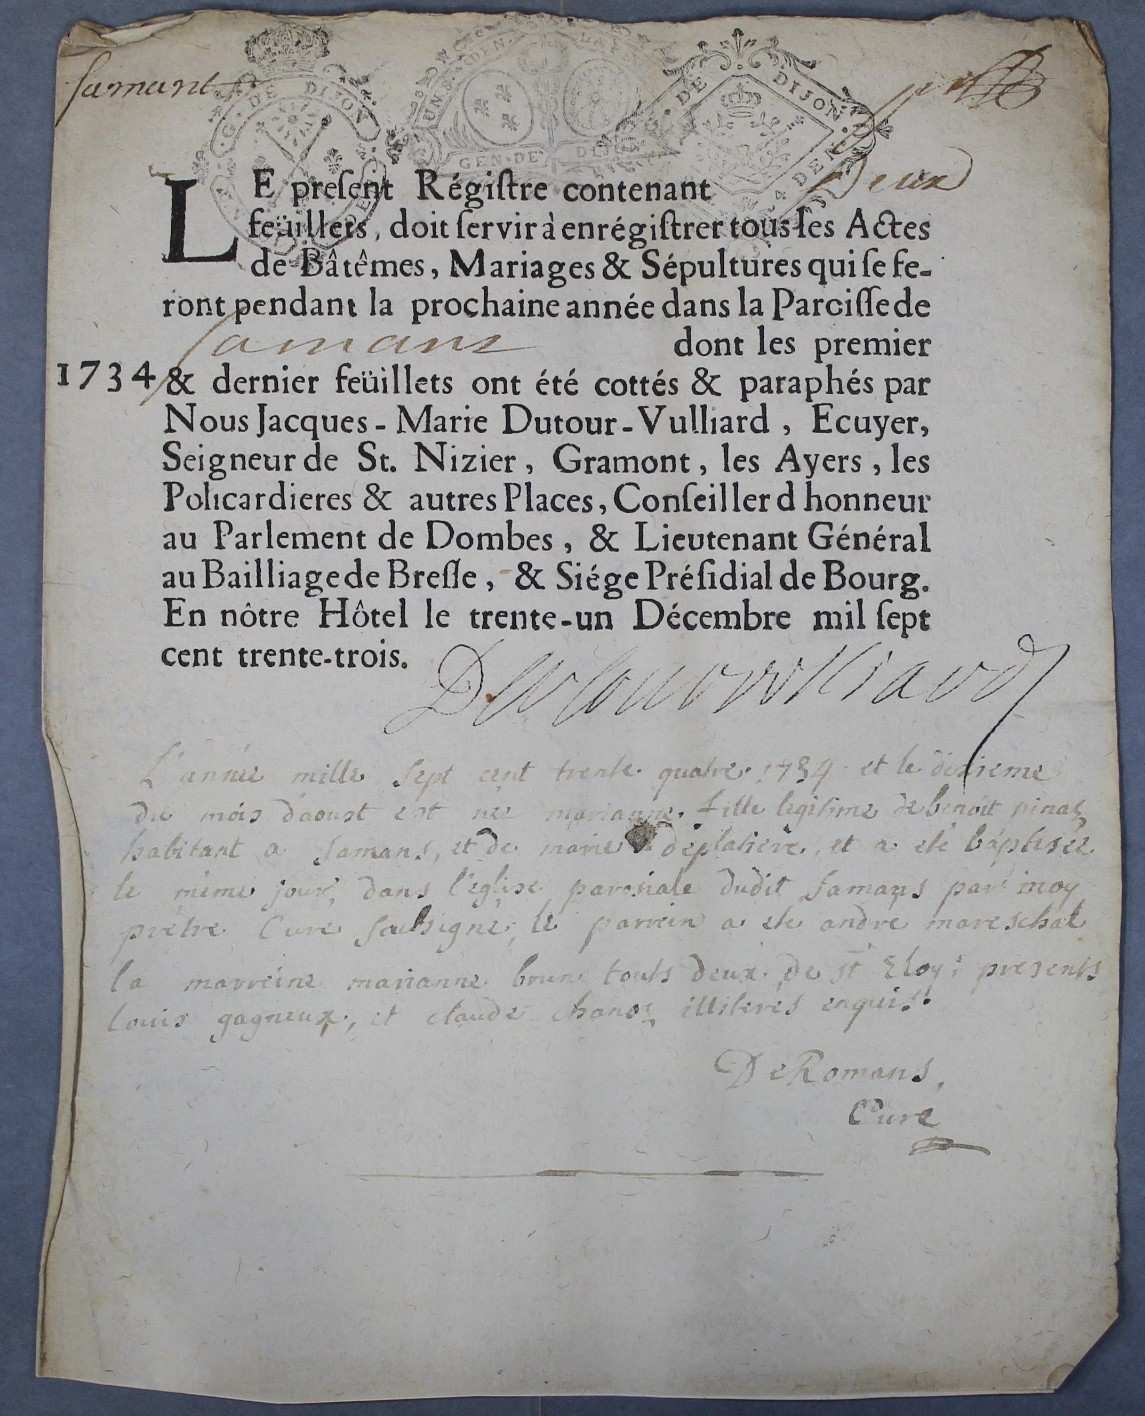 Samans
G. DE DIJON
GEN. DE DIJON
DE DIJON
4 DEN
LE preſent Régiſtre contenant Deux
feüillets, doit ſervir à enrégiſtrer tous les Actes
de Bâtêmes, Mariages & Sépultures qui ſe fe-
ront pendant la prochaine année dans la Parciſſe de
Samans dont les premier
1734 & dernier feüillets ont été cottés & paraphés par
Nous Jacques-Marie Dutour-Vulliard, Ecuyer,
Seigneur de St. Nizier, Gramont, les Ayers, les
Policardieres & autres Places, Conſeiller d honneur
au Parlement de Dombes, & Lieutenant Général
au Bailliage de Breſſe, & Siége Préſidial de Bourg.
En nôtre Hôtel le trente-un Décembre mil ſept
cent trente-trois.
Dutourvulliard
L'année mille sept cent trente quatre 1734 et le dixieme
du mois d'aoust est née marianne fille legitime de benoit pinaz
habitant a Samans, et de marie deplatiere, et a eté baptisée
le même jour, dans l'eglise parosiale dudit Samans par moy
prêtre Curé soubsigné, le parrein a eté andré mareschal
la marreine marianne brun touts deux de st Eloy; presents
louis gagneux, et claude chanoz illiteres enquis.
De Romans,
Curé